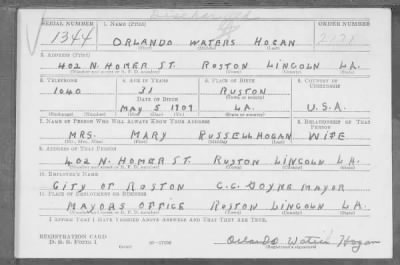 SERIAL NUMBER 1. NAME (Print) ORDER NUMBER
1344 ORLANDO WATERS HOGAN
(First) (Middle) (Last)
2. ADDRESS (Print)
402 N. HOMER ST. RUSTON LINCOLN LA.
(Number and street or R. F. D. number) (Town) (County) (State)
3. TELEPHONE 4. AGE IN YEARS 5. PLACE OF BIRTH 6. COUNTRY OF CITIZENSHIP
1040 31 RUSTON
DATE OF BIRTH (Town or county)
MAY 5 1909 LA. U.S.A.
(Exchange) (Number) (Mo.) (Day) (Yr.) (State or country)
7. NAME OF PERSON WHO WILL ALWAYS KNOW YOUR ADDRESS 8. RELATIONSHIP OF THAT PERSON
MRS. MARY RUSSELL HOGAN WIFE
(Mr., Mrs., Miss) (First) (Middle) (Last)
9. ADDRESS OF THAT PERSON
402 N. HOMER ST. RUSTON LINCOLN LA.
(Number and street or R. F. D. number) (Town) (County) (State)
10. EMPLOYER'S NAME
CITY OF RUSTON C.C. GOYNE MAYOR
11. PLACE OF EMPLOYMENT OR BUSINESS
MAYORS OFFICE RUSTON LINCOLN LA.
(Number and street or R. F. D. number) (Town) (County) (State)
I AFFIRM THAT I HAVE VERIFIED ABOVE ANSWERS AND THAT THEY ARE TRUE.
REGISTRATION CARD
D. S. S. FORM 1
Orlando Waters Hogan
(Registrant's signature)